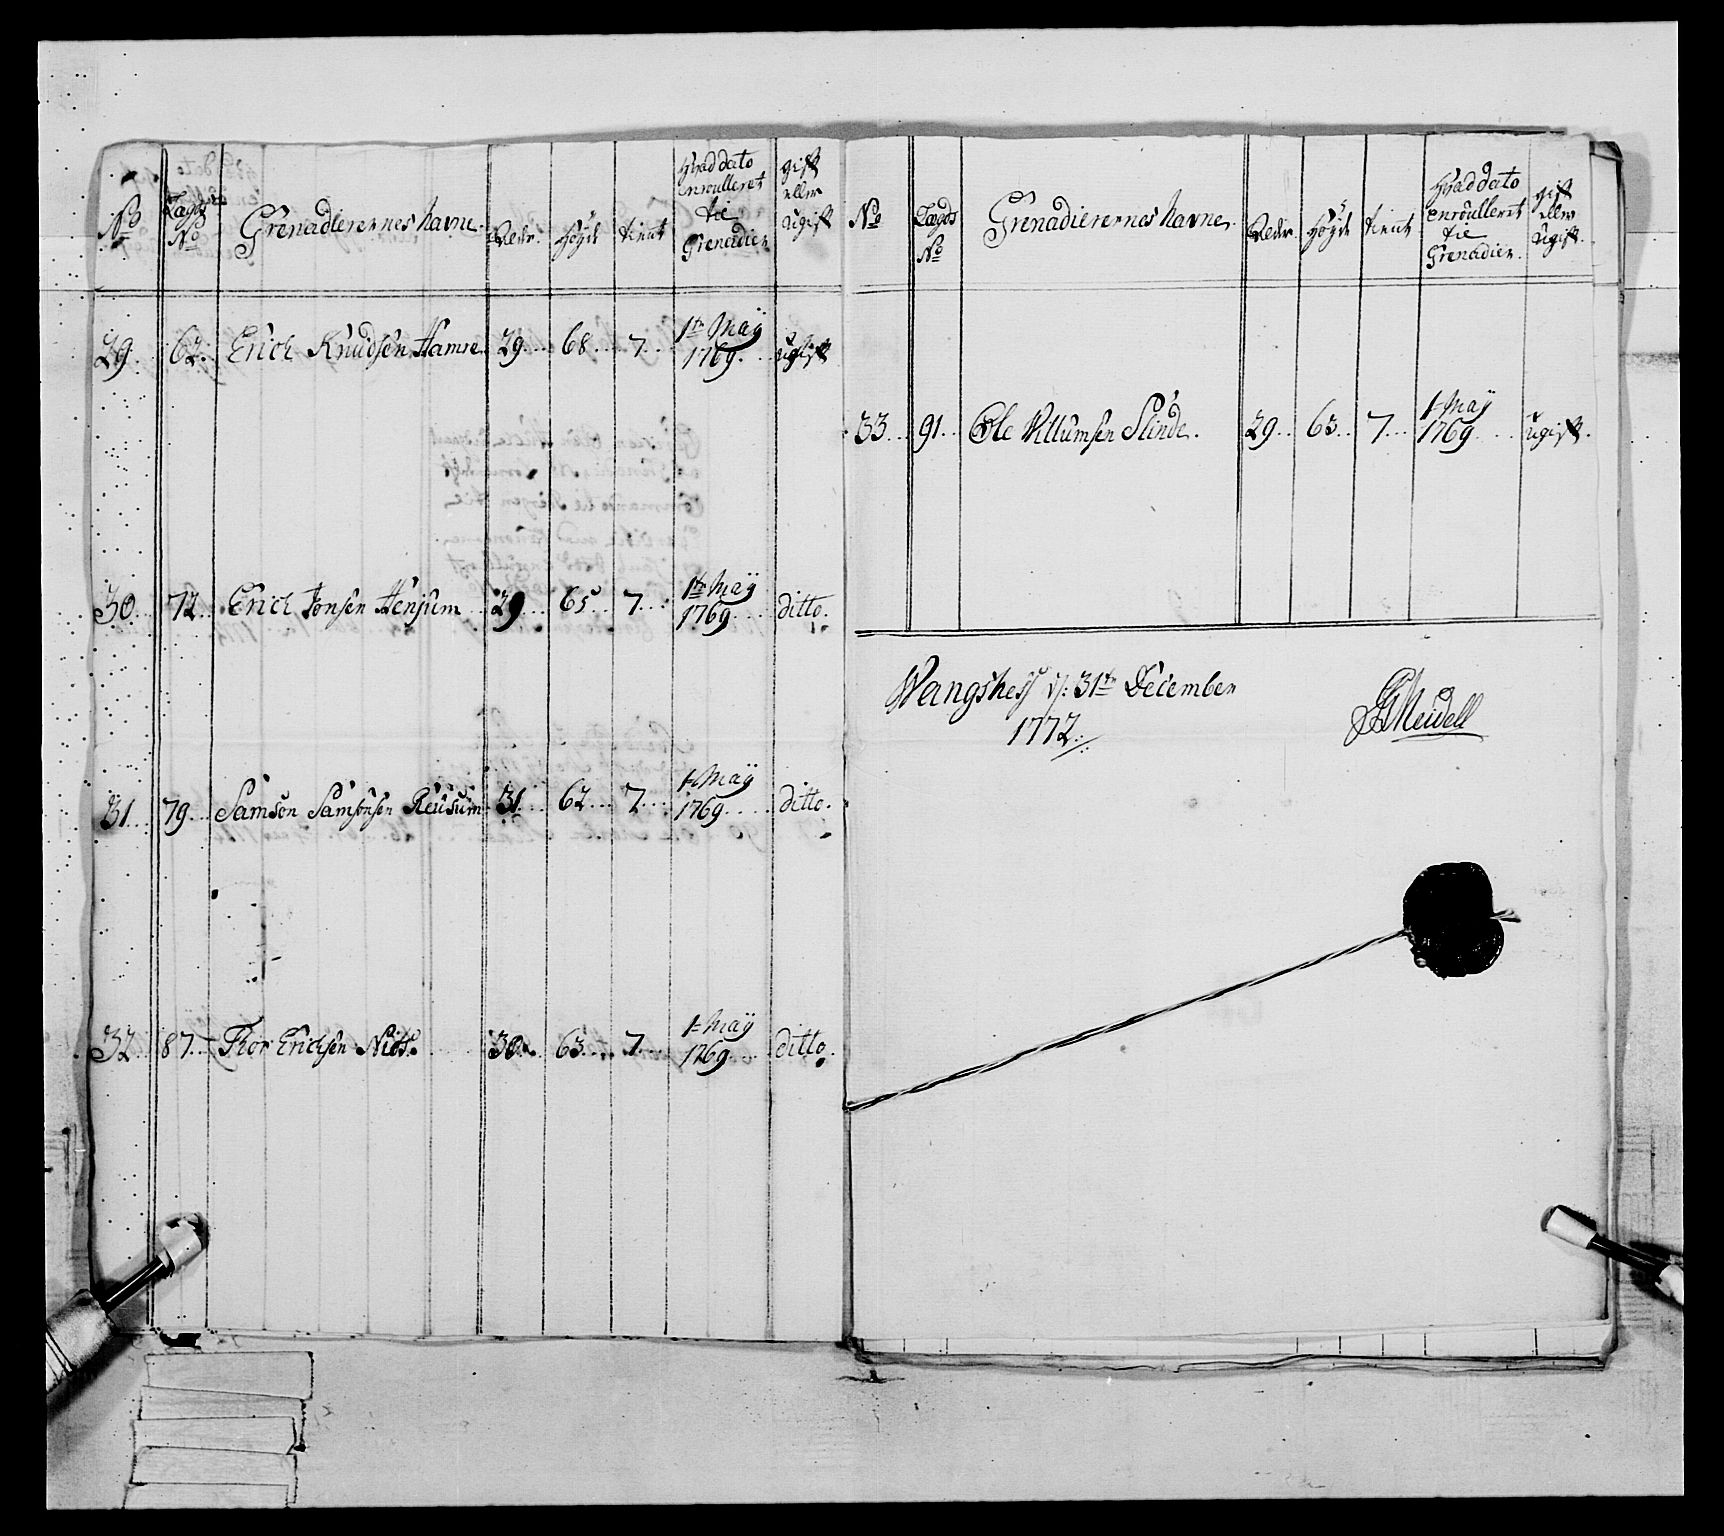 No Lægds No Grenadierernes havne. Alder. Høyde tient Hvad dato enroulleret til Grenadier gift eller ugift
29. 62. Erich Knudsen Hamre 29. 68. 7. 1te Maÿ 1769. ugift
30. 72. Erich Jonsen Henjum 29. 65. 7. 1te Maÿ 1769. ditto.
31. 79. Samson Samsonsen Reusum 31. 62. 7. 1= Maÿ 1769. ditto.
32. 87. Thor Erichsen Nids. 30. 63. 7. 1= Maÿ 1769. ditto.
No Lægds No Grenadierernes havne. Alder. Høyde tient Hvad dato enroulleret til Grenadier. gift eller ugift.
33. 91. Ole Villumsen Slinde. 29. 63. 7. 1= Maÿ 1769. ugift.
31te December
1772.
Meidell